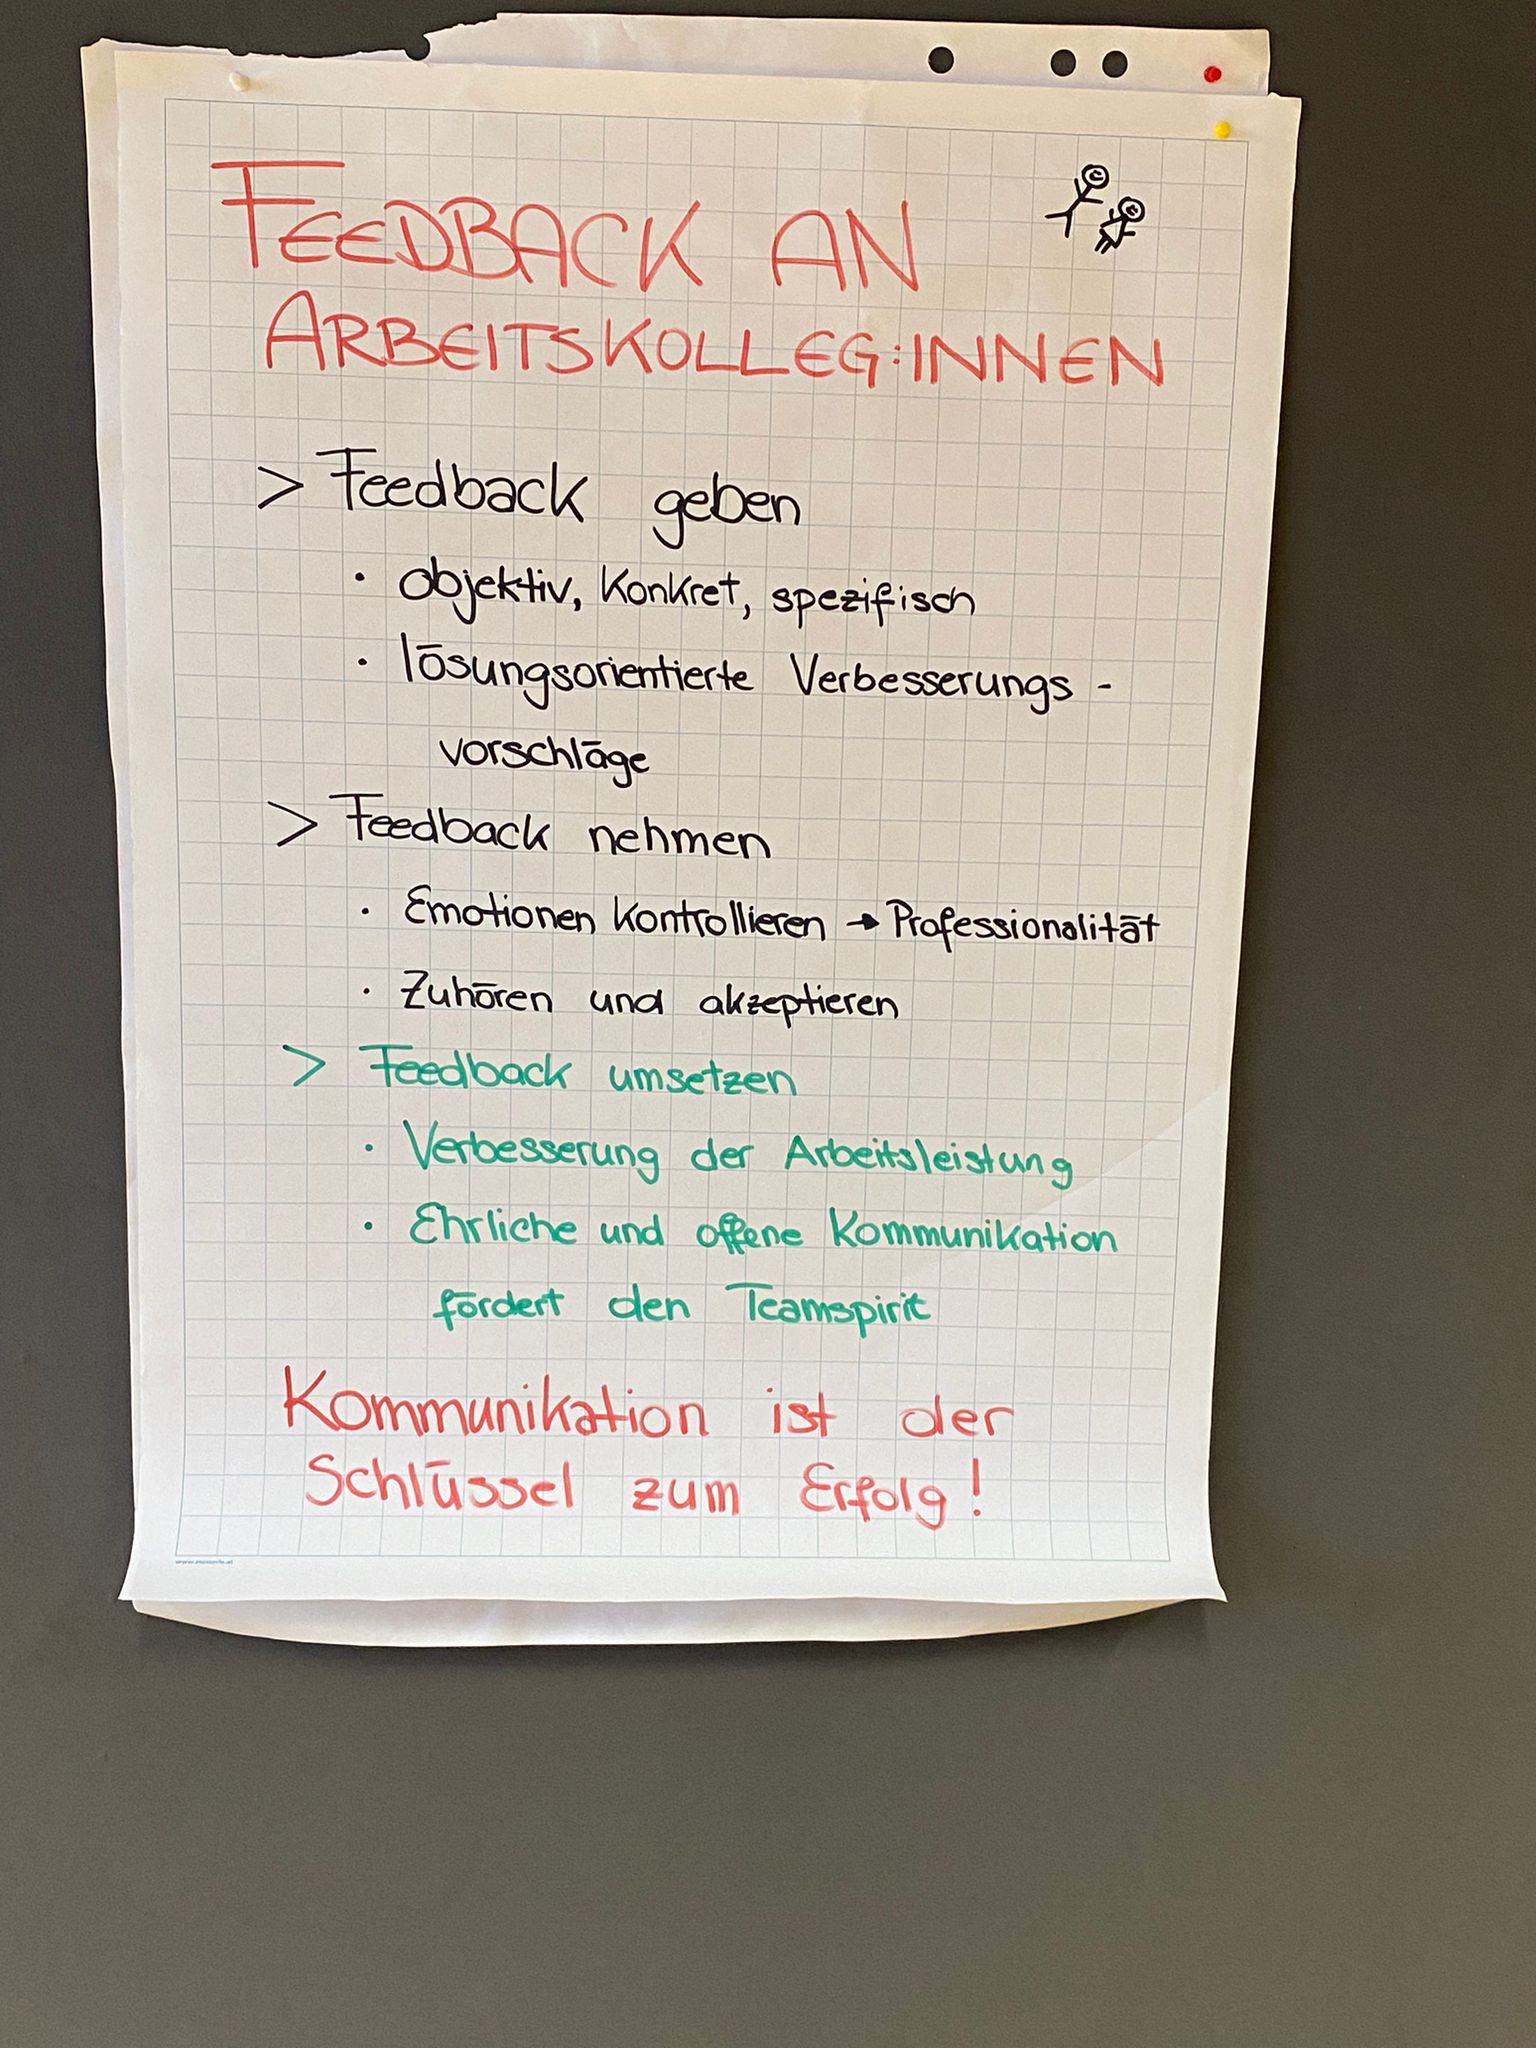 FEEDBACK AN
ARBEITSKOLLEG:INNEN
> Feedback geben
• objektiv, konkret, spezifisch
• lösungsorientierte Verbesserungs-
vorschläge
> Feedback nehmen
• Emotionen kontrollieren → Professionalität
• Zuhören und akzeptieren
> Feedback umsetzen
• Verbesserung der Arbeitsleistung
• Ehrliche und offene Kommunikation
fördert den Teamspirit
Kommunikation ist der
Schlüssel zum Erfolg!